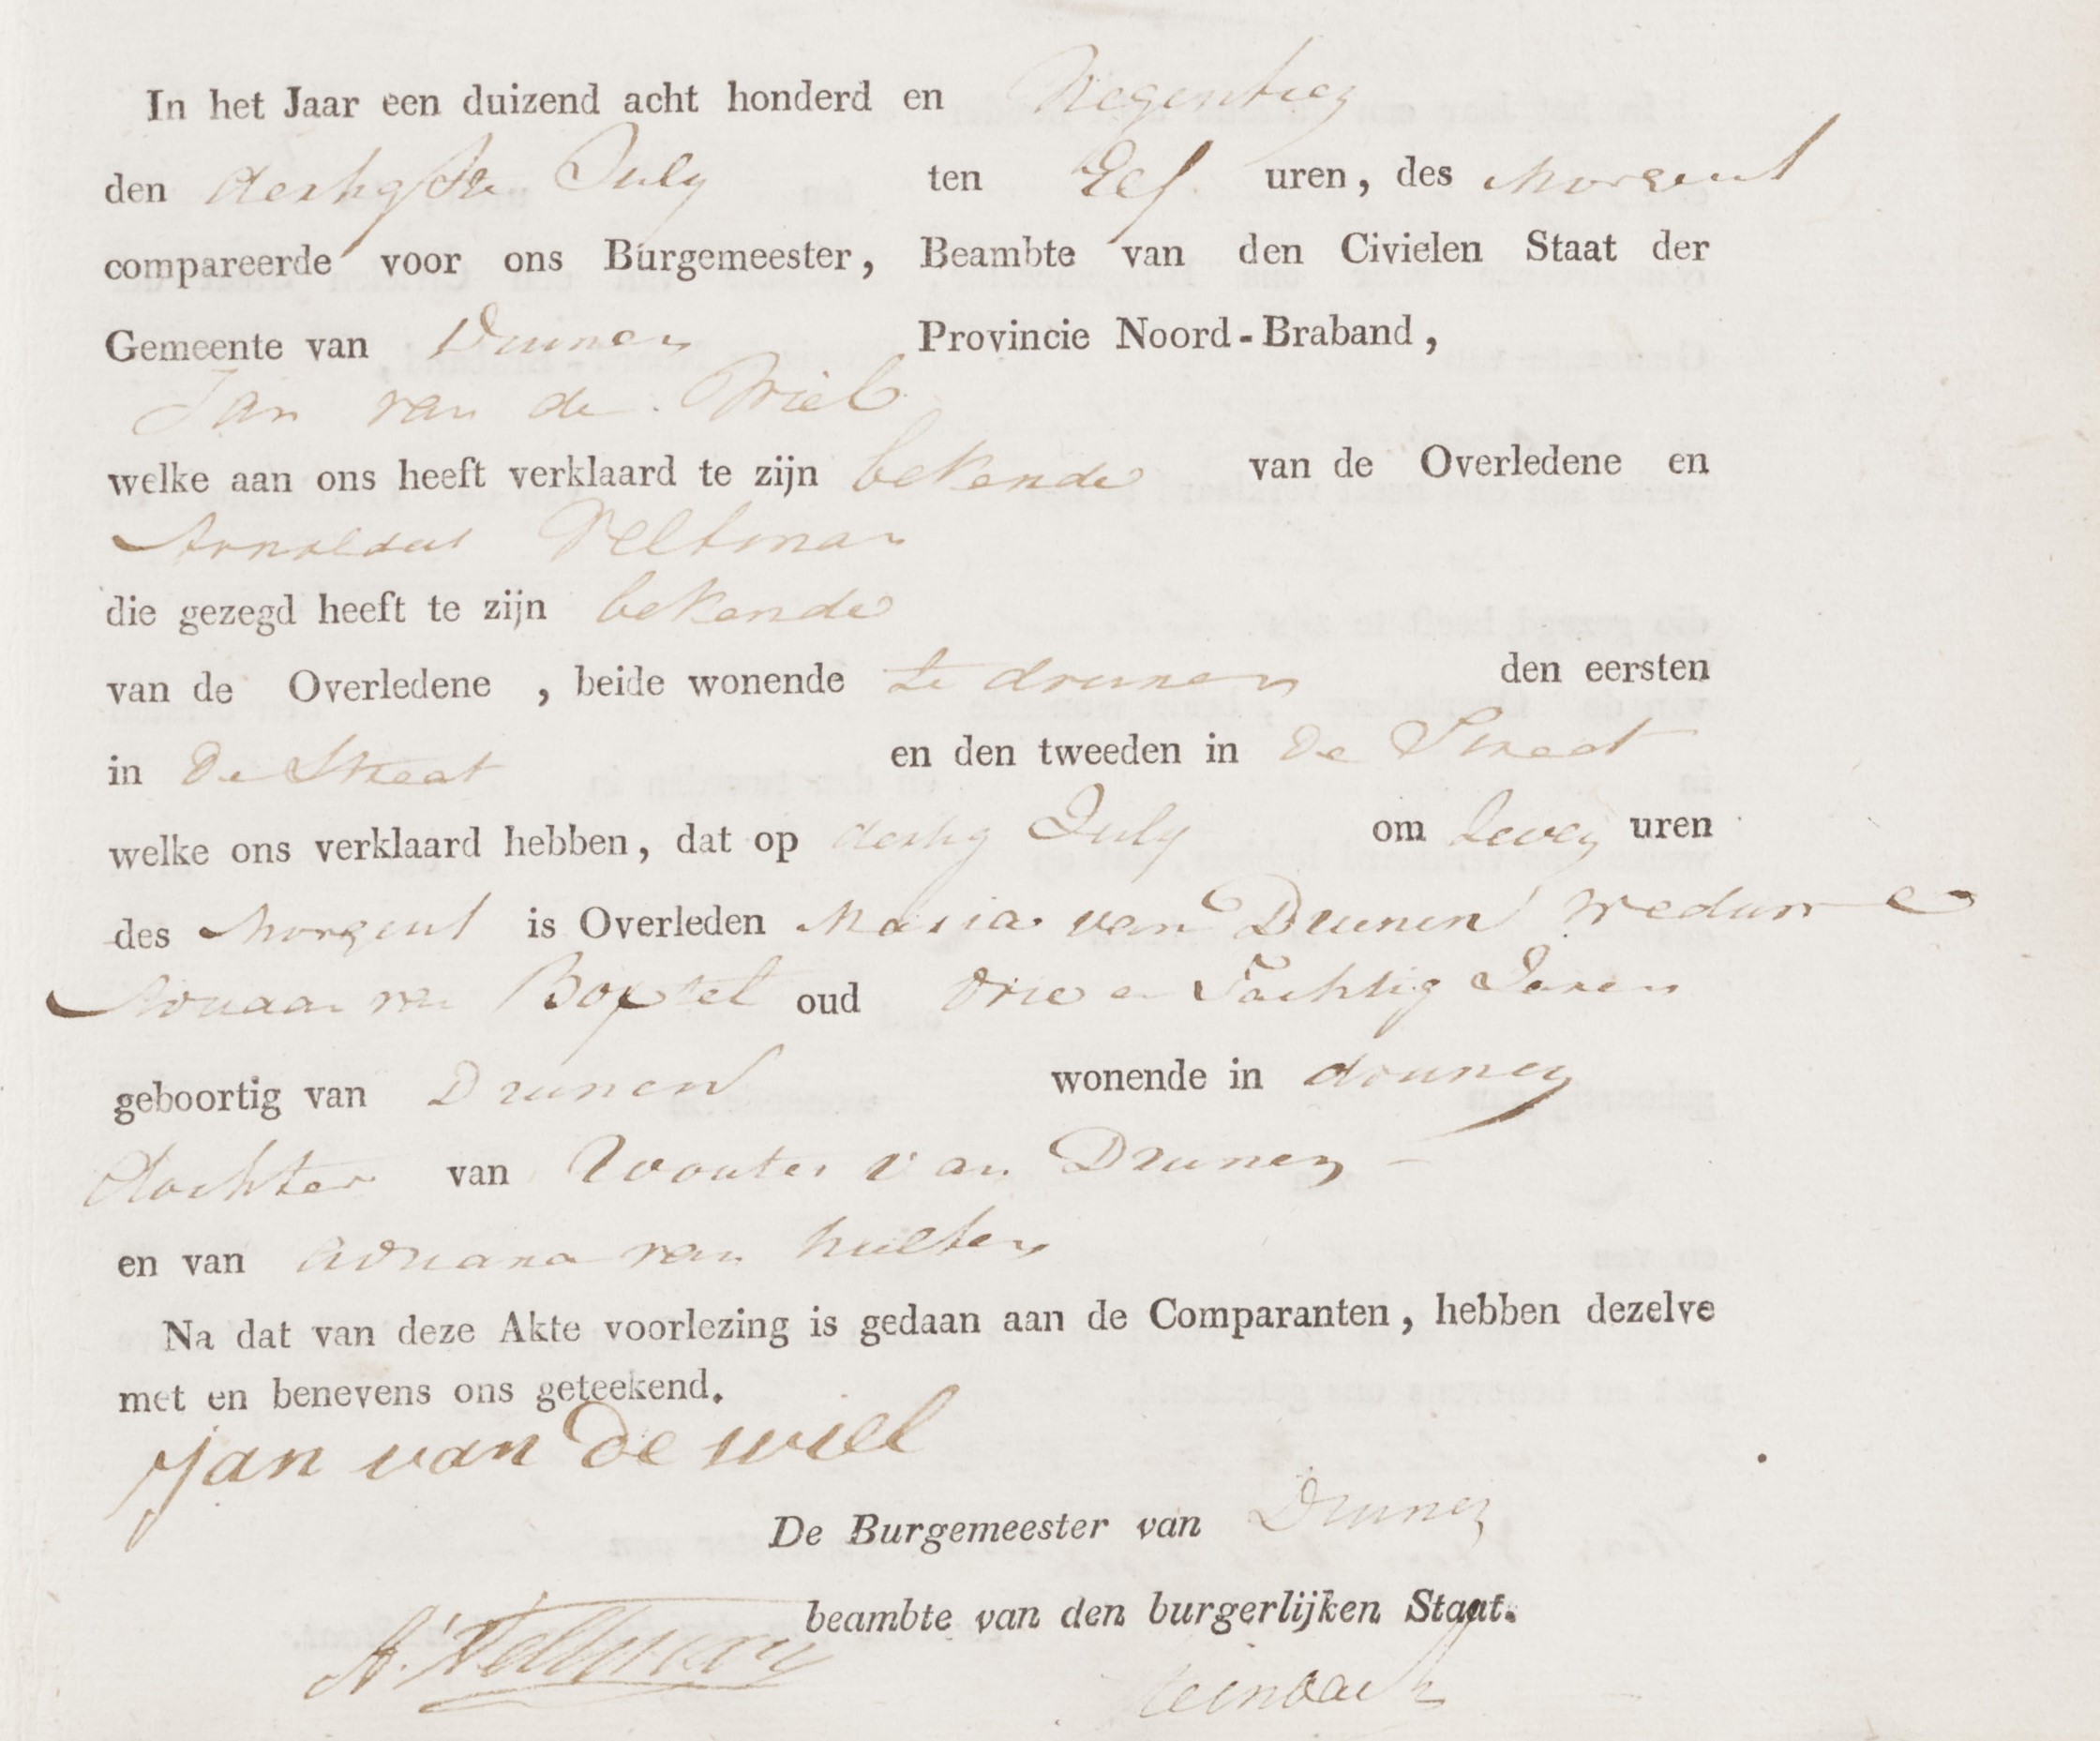 In het Jaar een duizend acht honderd en Negentien
den dertigste July ten Elf uren, des Morgens
compareerde voor ons Burgemeester, Beambte van den Civielen Staat der
Gemeente van Drunen Provincie Noord-Braband,
Jan van de Wiel
welke aan ons heeft verklaard te zijn bekende van de Overledene en
Arnoldus Veltman
die gezegd heeft te zijn bekende
van de Overledene , beide wonende te drunen den eersten
in De Straat en den tweeden in De Straat
welke ons verklaard hebben, dat op dertig July om Seven uren
des Morgens is Overleden Maria van Drunen weduwe
Adriaan van Boxtel oud Drie en Tachtig Jaren
geboortig van Drunen wonende in drunen
dochter van Wouter van Drunen
en van adriana van hulten
Na dat van deze Akte voorlezing is gedaan aan de Comparanten, hebben dezelve
met en benevens ons geteekend.
Jan van De wiel
De Burgemeester van Drunen
beambte van den burgerlijken Staat.
A. Veltman